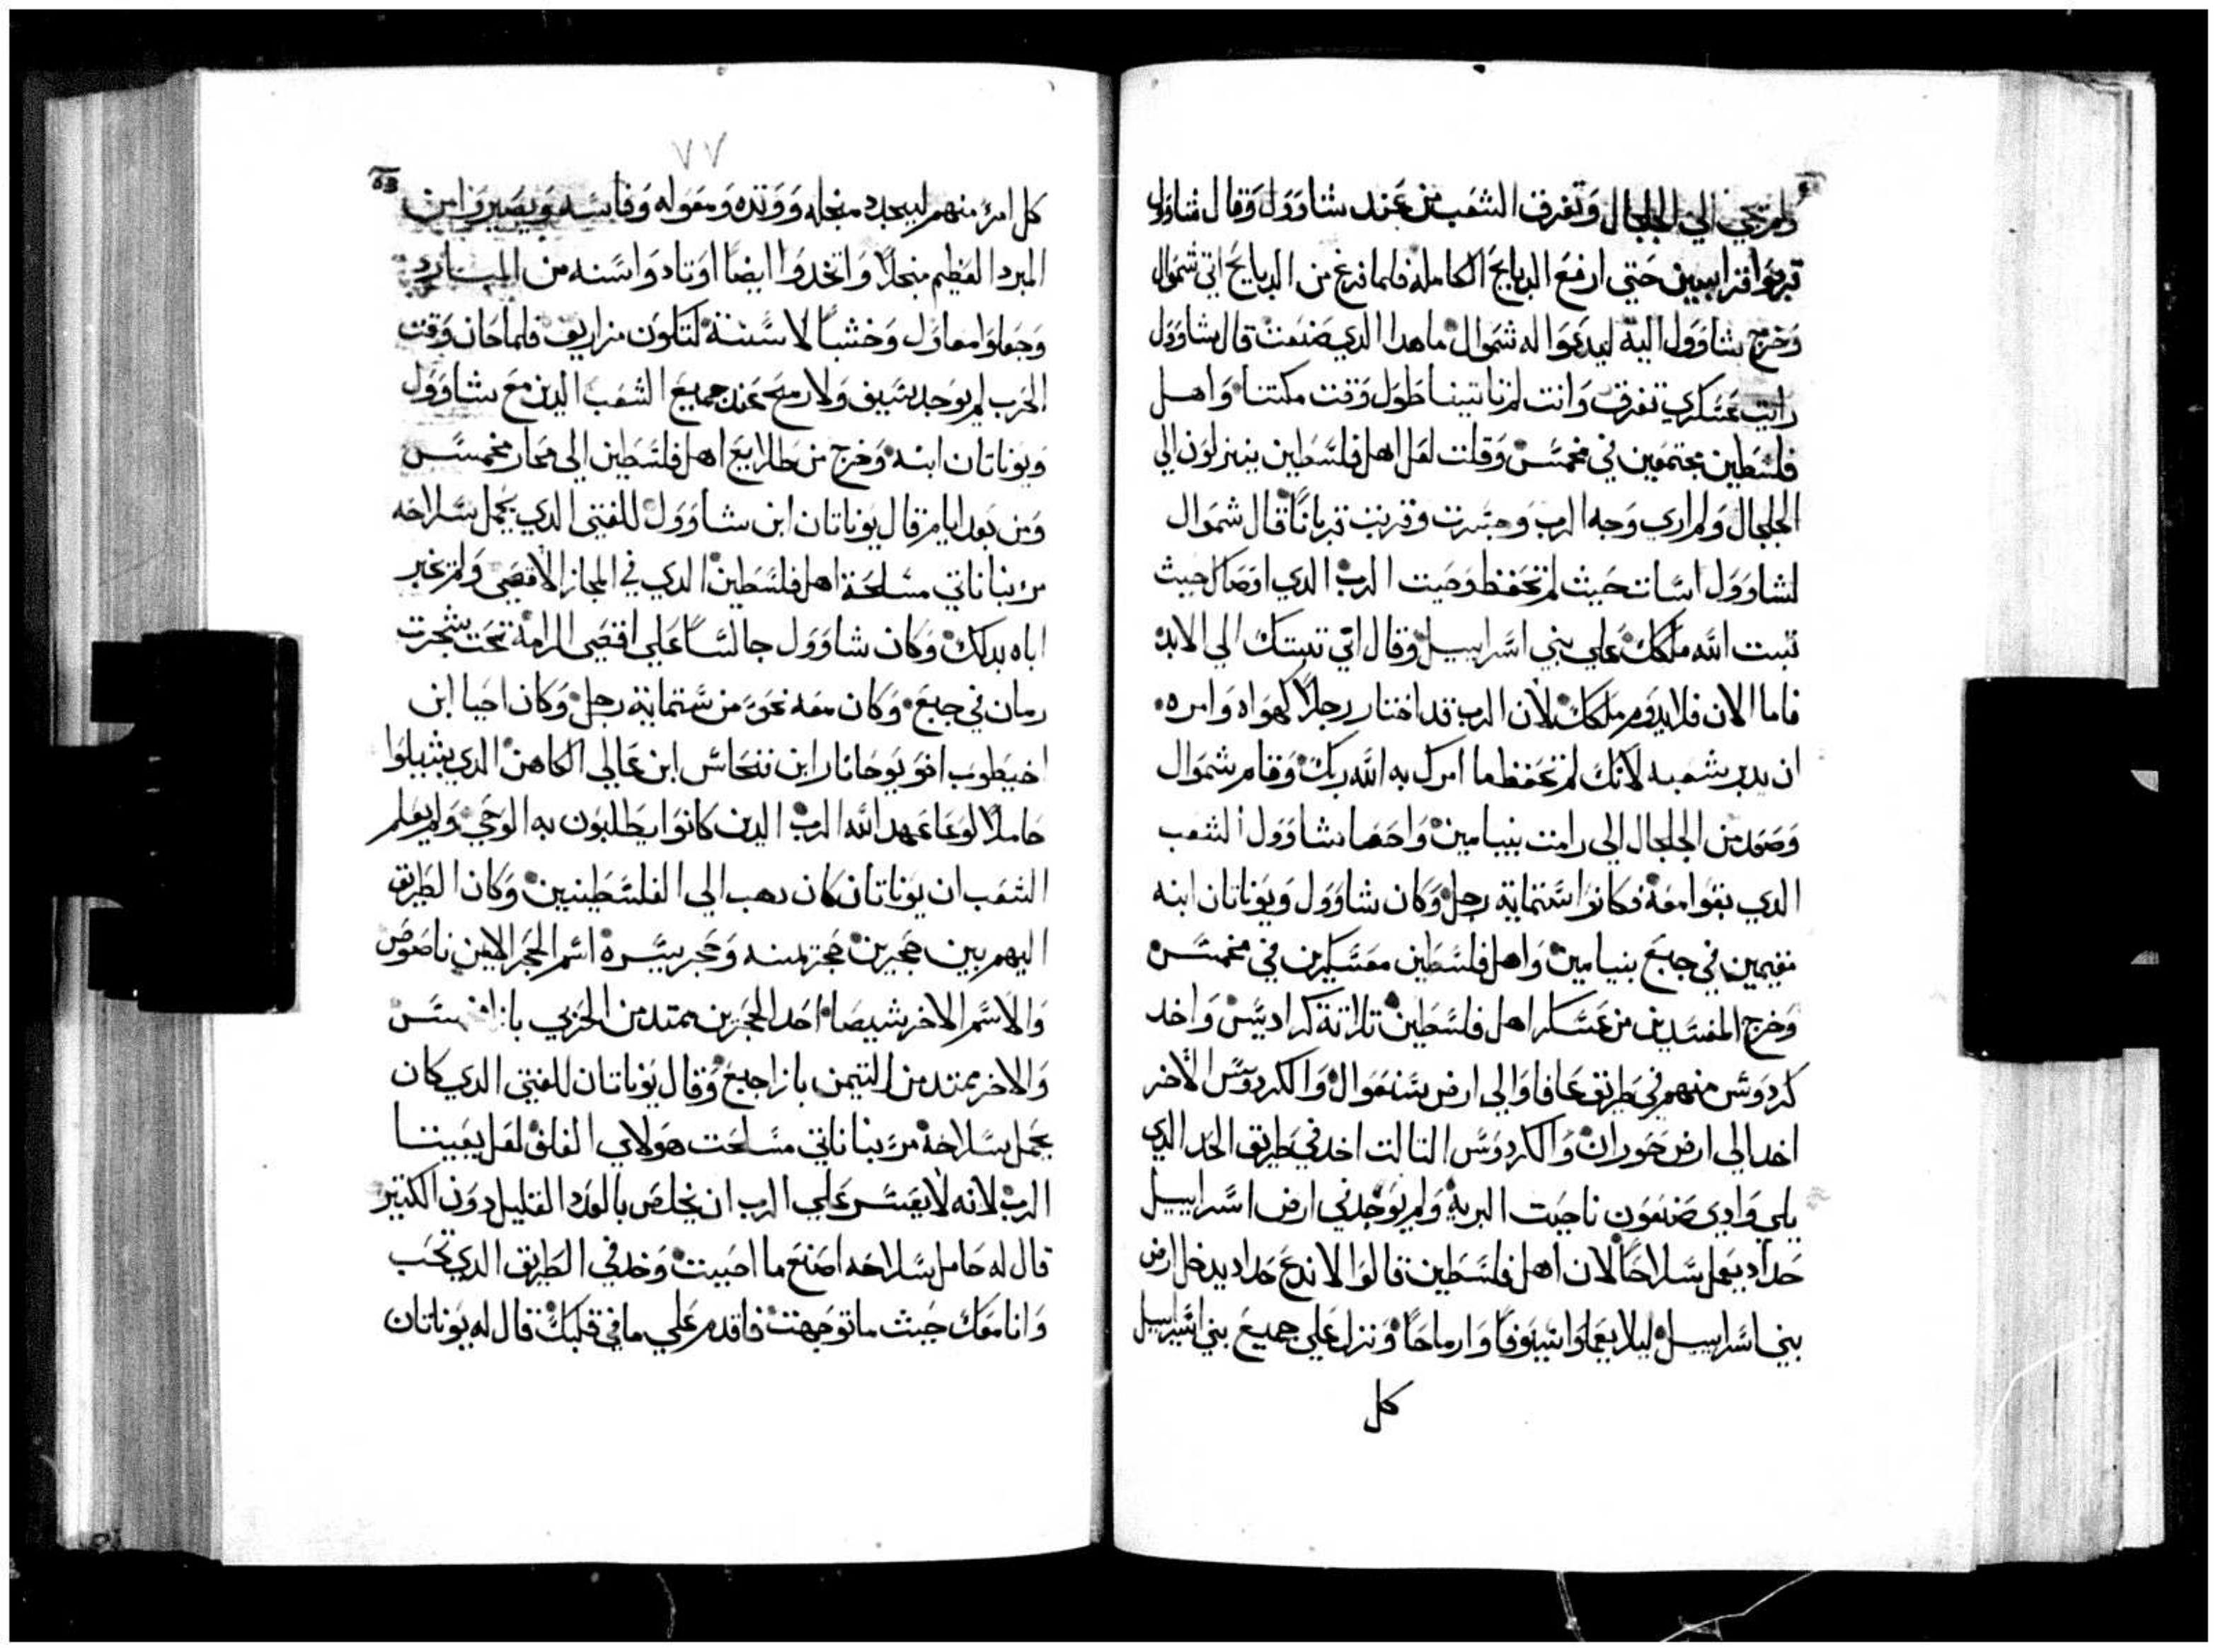 ولم يجي الي الجلجال وتفرق الشعب من عند شاوول وقال شاوول
قربوا قرابين حتي ارفع الدبايح الكامله فلما فرغ من الدبايح اتي شموال
وخرج شاوول اليه ليدعوا له شموال ما هدا الدي صنعت قال شاوول
رايت عسكري تفرق وانت لم تاتينا طول وقت مكتنا واهل
فلسطين مجتمعين في مخمس وقلت لعل اهل فلسطين ينزلون الي
الجلجال ولم اري وجه الرب وجسرت وقربت قربانًا قال شموال
لشاوول اسات حيث لم تحفظ وصيت الرب الدي اوصاك حيث
تبت الله ملكك علي بني اسراييل وقال اني تبتك الي الابد
فاما الان فلا يدوم ملكك لان الرب قد اختار رجلاً كهواه وامره
ان يدبر شعبه لانك لم تحفظ ما امرك به الله ربك وقام شموال
وصعد من الجلجال الي رامت بنيامين واحصا شاوول الشعب
الدي بقوا معه فكانوا ستماية رجل وكان شاوول ويوناتان ابنه
مقيمين في جبع بنيامين واهل فلسطين معسكرين في مخمس
وخرج المفسدين من عسكر اهل فلسطين تلاتة كراديس واخد
كردوس منهم في طريق عافاوا الي ارض سنعوال والكردوس الاخر
اخد الي ارض حوران والكردوس التالت اخد في طريق الحد الدي
يلي وادي صنعون ناحيت البرية ولم يوجد في ارض اسراييل
حداد يعمل سلاحًا لان اهل فلسطين قالوا لا ندع حداد يدخل ارض
بني اسراييل ليلا يعملوا سيوفًا وارماحًا ونزل علي جميع بني اسراييل
كل
٧٧
63
كل امرء منهم ليحدد منجله ووتده ومعوله وفاسه ويصيروا من
المبرد العظيم منجلاً واتخدوا ايضًا اوتاد واسنه من المبارد
وجعلوا معاول وخشبًا لاسنة لتكون مزاريق فلما حان وقت
الحرب لم يوجد سيف ولا رمح عند جميع الشعب الدين مع شاوول
ويوناتان ابنه وخرج من طلايع اهل فلسطين الي مجاز مخمس
ومن بعد ايام قال يوناتان ابن شاوول للفتي الدي يحمل سلاحه
مر بنا ناتي مسلحة اهل فلسطين الدي في المجاز الاقصي ولم يخبر
اباه بدلك وكان شاوول جالسًا علي اقصي الرامة تحت شجرت
رمان في جبع وكان معه نحو من ستماية رجل وكان احيا ابن
اخيطوب اخو يوحانار ابن فنحاس ابن عالي الكاهن الدي بشيلوا
حاملاً لوعا عهد الله الرب الدين كانوا يطلبون به الوحي ولم يعلم
الشعب ان يوناتان كان دهب الي الفلسطينيين وكان الطريق
اليهم بين حجرين حجر يمنه وحجر يسره اسم الحجر الايمن ناصوص
والاسم الاخر شيصا احد الحجرين ممتد من الحربي بازا
والاخر ممتد من التيمن بازا جبع وقال يوناتان للفتي الدي كان
يحمل سلاحه مر بنا ناتي مسلحت هولاي الغلف لعل يعيننا
الرب لانه لا يعسر علي الرب ان يخلص بالعدد القليل دون الكتير
قال له حامل سلاحه اصنع ما احببت وخد في الطريق الدي تحب
وانا معك حيث ما توجهت فاقدم علي ما في قلبك قال له يوناتان